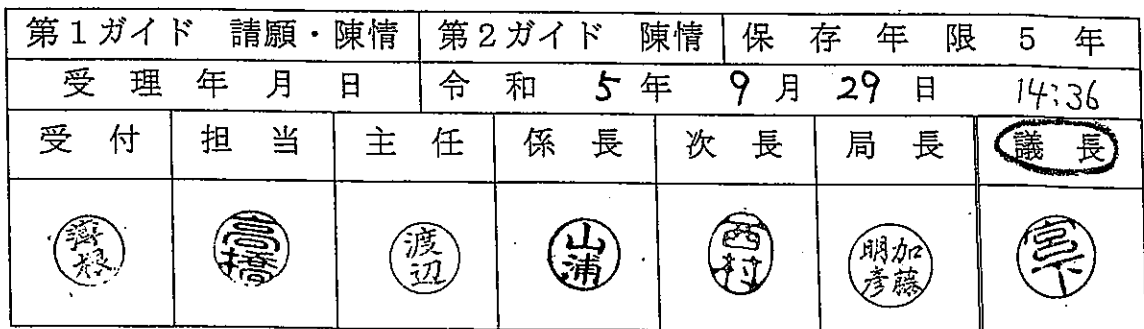 第1ガイド 請願・陳情 第2ガイド 陳情 保存年限 5年
受理年月日 令和 5年 9月 29日 14:36
受付 担当 主任 係長 次長 局長 議長
高橋 渡辺 山浦 西村 加藤明彦 宮下